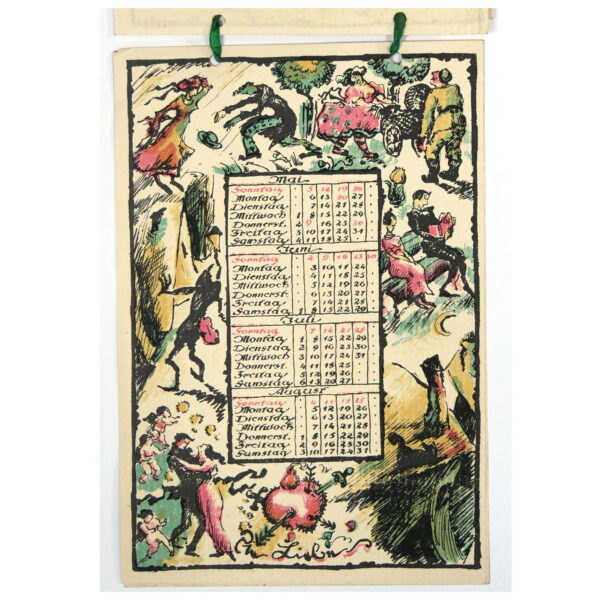 Mai
Sonntag 5 12 19 26
Montag 6 13 20 27
Dienstag 7 14 21 28
Mittwoch 1 8 15 22 29
Donnerst. 2 9 16 23 30
Freitag 3 10 17 24 31
Samstag 4 11 18 25
Juni
Sonntag 2 9 16 23 30
Montag 3 10 17 24
Dienstag 4 11 18 25
Mittwoch 5 12 19 26
Donnerst. 6 13 20 27
Freitag 7 14 21 28
Samstag 1 8 15 22 29
Juli
Sonntag 7 14 21 28
Montag 1 8 15 22 29
Dienstag 2 9 16 23 30
Mittwoch 3 10 17 24 31
Donnerst. 4 11 18 25
Freitag 5 12 19 26
Samstag 6 13 20 27
August
Sonntag 4 11 18 25
Montag 5 12 19 26
Dienstag 6 13 20 27
Mittwoch 7 14 21 28
Donnerst. 1 8 15 22 29
Freitag 2 9 16 23 30
Samstag 3 10 17 24 31
Liebe